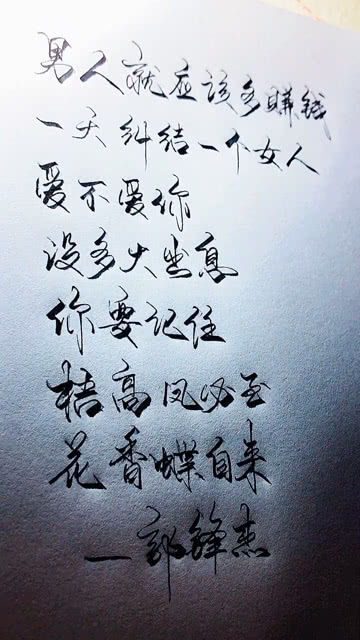 男人就应该多賺钱
一天纠结一个女人
爱不爱你
没多大出息
你要记住
梧高凤必至
花香蝶自来
—郭锋杰